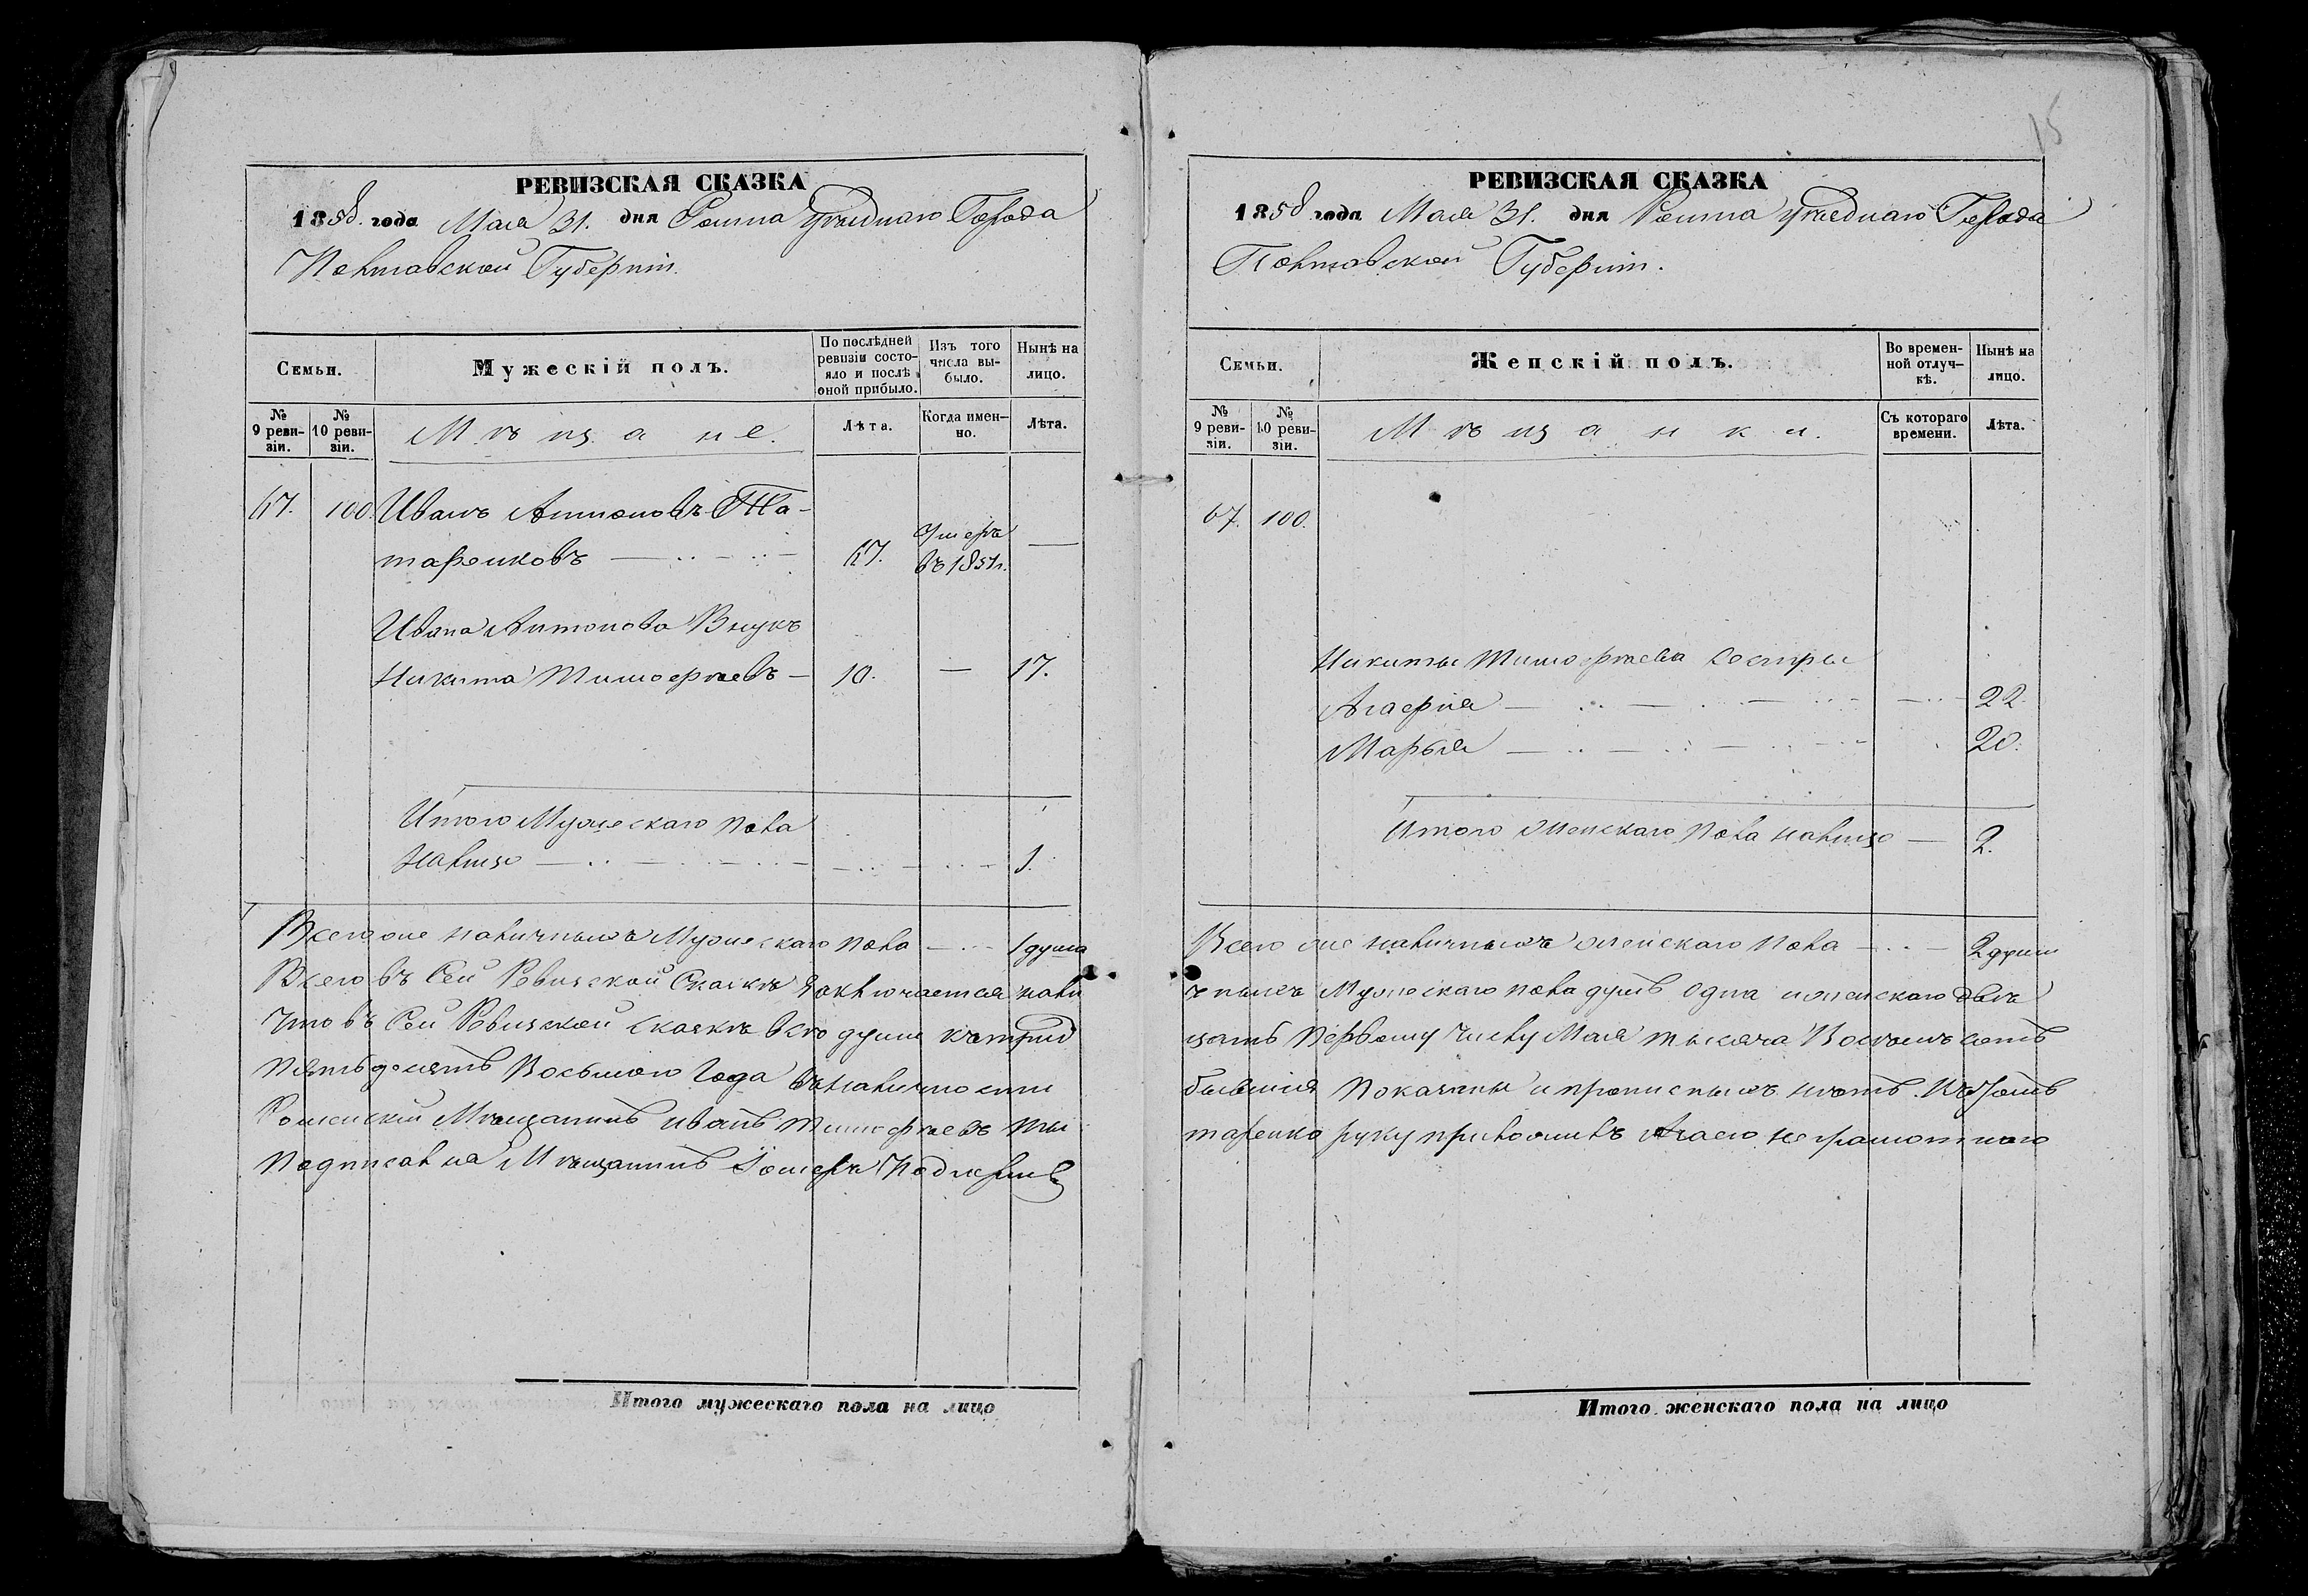 РЕВИЗСКАЯ СКАЗКА
1858 года Мая 31. дня Ромна уѣзднаго Города
Полтавской Губерніи.
Семьи.
Мужескій полъ.
По послѣдней ревизіи состояло и послѣ оной прибыло.
Изъ того числа выбыло.
Нынѣ на лицо.
№ 9 ревизіи.
№ 10 ревизіи.
Мѣщане.
Лѣта.
Когда именно.
Лѣта.
67. 100. Иванъ Антоновъ Та-
таренковъ — 67. Умеръ въ 1851г. —
Ивана Антонова Внукъ
Никита Тимофѣевъ — 10. — 17.
Итого Мужескаго пола
налицо — 1.
Всего же наличныхъ Мужескаго пола — 1 душа
Всего въ Сей Ревизской Сказкѣ заключается нали
Что въ Сей Ревизской сказкѣ всѣ души къ
Пятьдесятъ Восьмого Года въ наличности
Роменскій Мѣщанинъ Иванъ Тимофѣевъ Та
Подписался Мѣщанинъ
Итого мужескаго пола на лицо
15
РЕВИЗСКАЯ СКАЗКА
1858 года Мая 31. дня Ромна уѣзднаго Города
Полтавской Губерніи.
Семьи.
Женскій полъ.
Во временной отлучкѣ.
Нынѣ на лицо.
№ 9 ревизіи.
№ 10 ревизіи.
Мѣщанки.
Съ котораго времени.
Лѣта.
67. 100.
Никиты Тимофѣева Сестры
Агафія — 22.
Марья — 20.
Итого Женскаго пола налицо — 2.
Всего же наличныхъ женскаго пола — 2 души
чныхъ Мужескаго пола душъ одна и женскаго двѣ
цать Первому Числу Мая тысяча Восемъ сотъ
бывшія Показаны и прописныхъ нѣтъ.
таренко руку приложилъ неграмотнаго
Итого женскаго пола на лицо